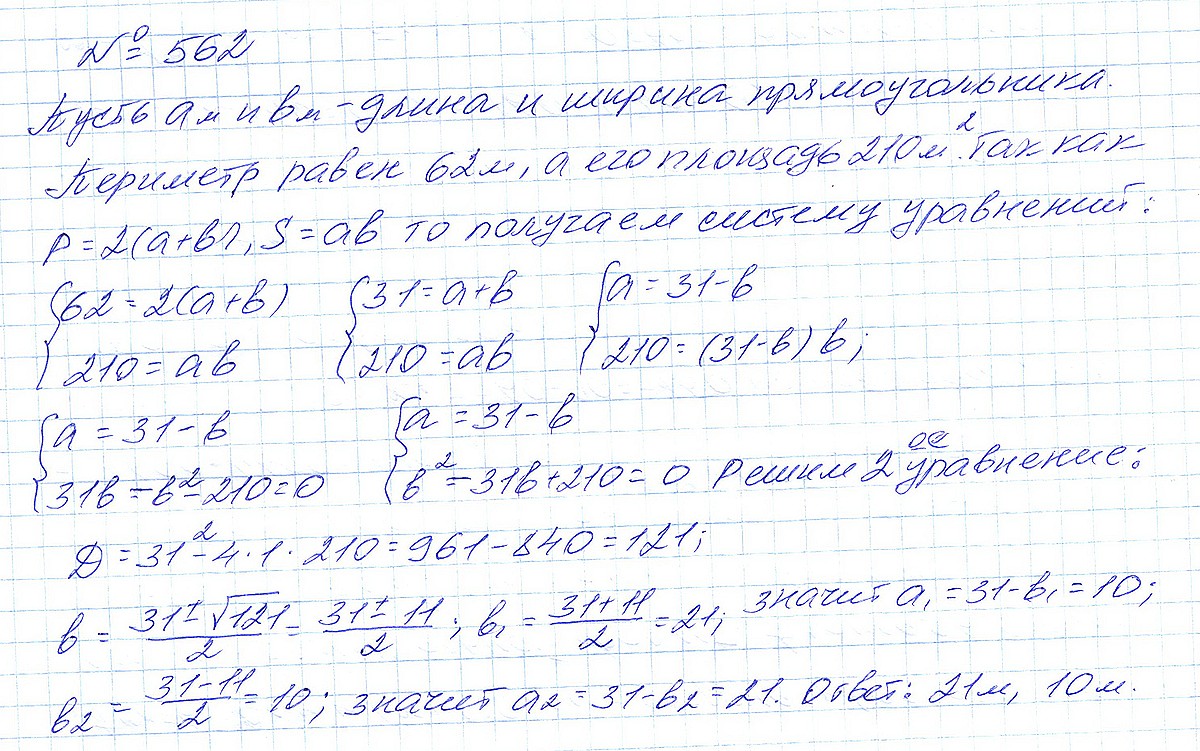 № 562
Пусть а м и в м - длина и ширина прямоугольника.
Периметр равен 62 м, а его площадь 210 м². Так как
P = 2(a+в), S = ав то получаем систему уравнений:
{62 = 2(а+в) {31 = а+в {а = 31-в
{210 = ав {210 = ав {210 = (31-в) в;
{а = 31-в {а = 31-в
{31в - в² - 210 = 0 {в² - 31в + 210 = 0 Решим 2ое уравнение:
Д = 31² - 4·1·210 = 961 - 840 = 121;
в = (31 ± √121)/2 = (31 ± 11)/2; в₁ = (31+11)/2 = 21; значит а₁ = 31-в₁ = 10;
в₂ = (31-11)/2 = 10; значит а₂ = 31-в₂ = 21. Ответ: 21 м, 10 м.